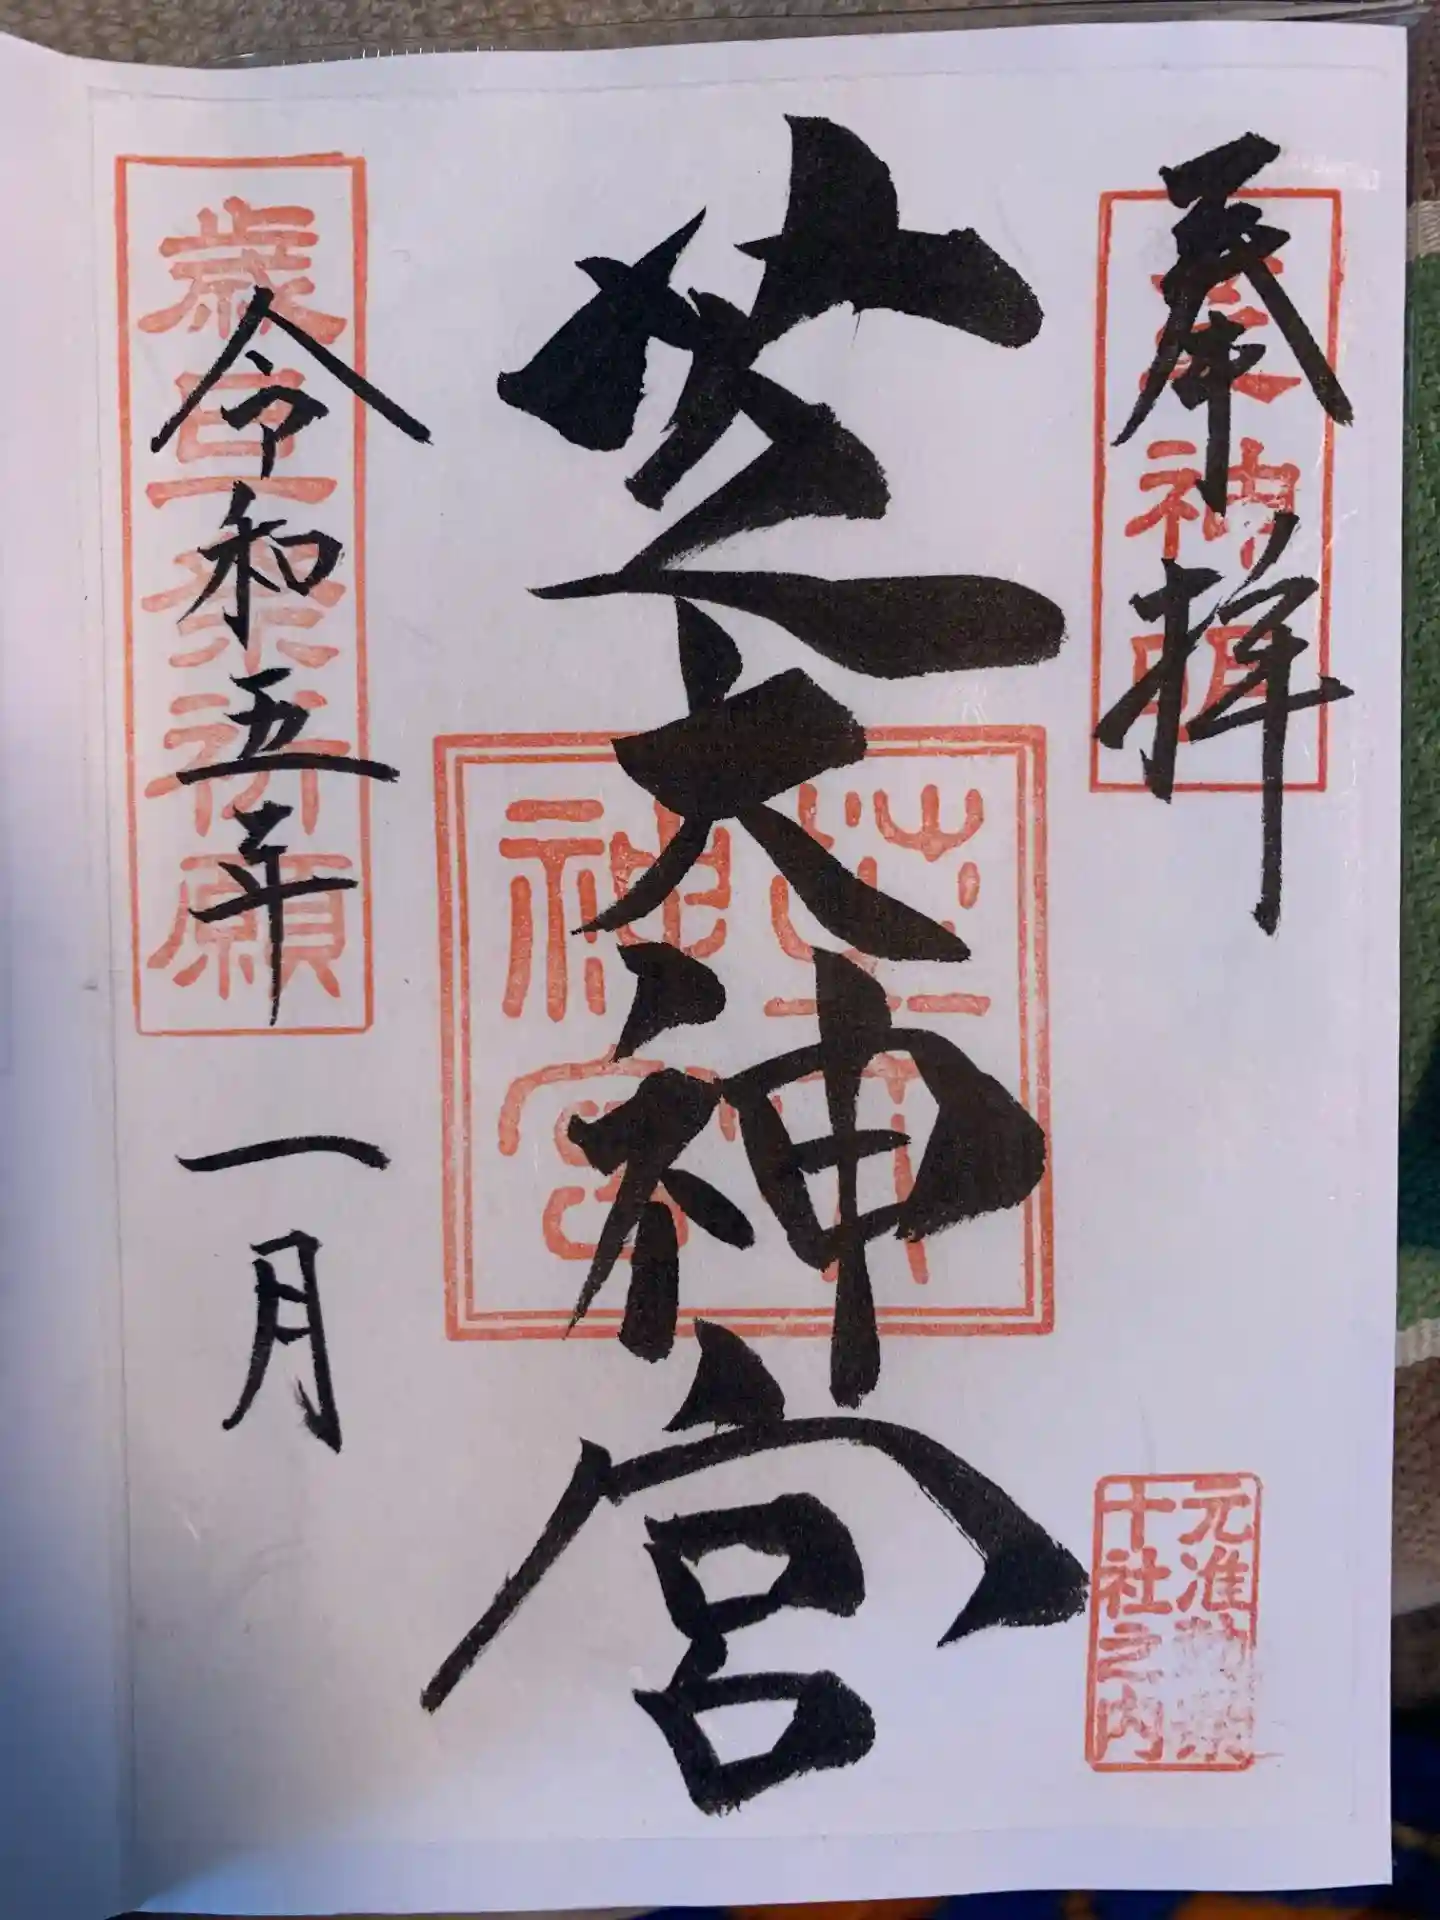 奉拝
芝大神宮
令和五年
一月
歳旦祭祈願
芝大
神宮
元准勅祭
十社之内